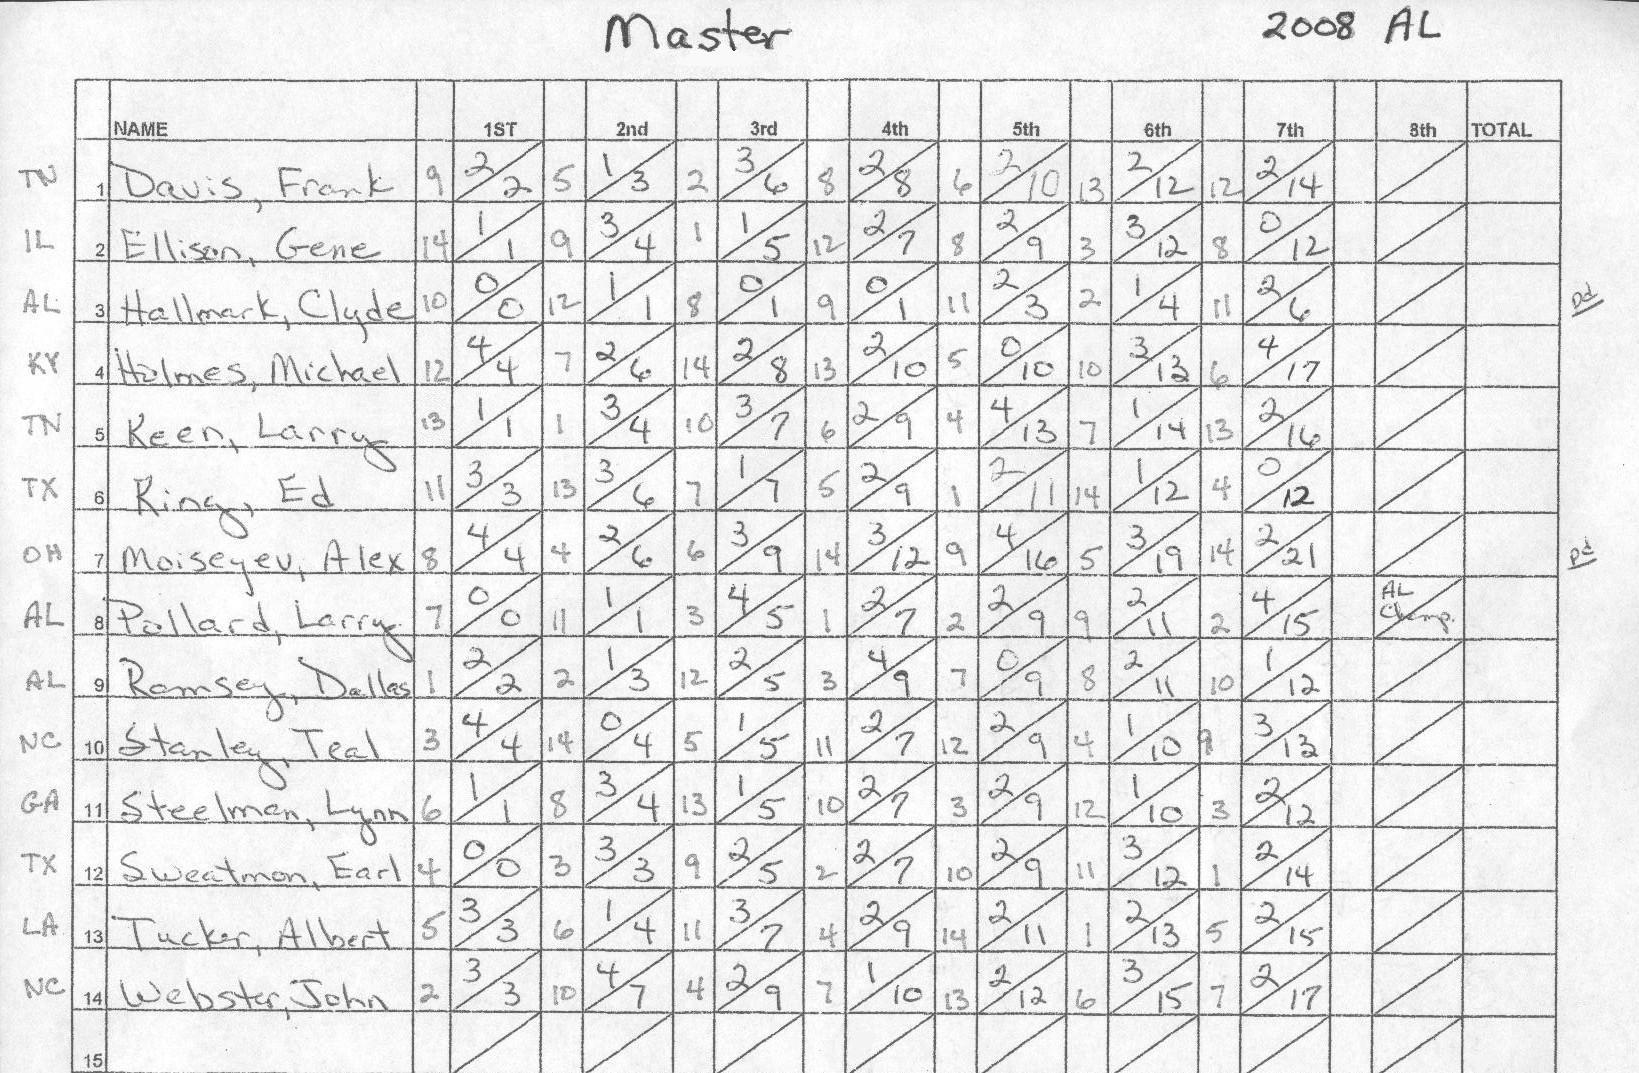 Master 2008 AL
NAME 1ST 2nd 3rd 4th 5th 6th 7th 8th TOTAL
TN 1 Davis, Frank 9 2/2 5 1/3 2 3/6 8 2/8 6 2/10 13 2/12 12 2/14
IL 2 Ellison, Gene 14 1/1 9 3/4 1 1/5 12 2/7 8 2/9 3 3/12 8 0/12
AL 3 Hallmark, Clyde 10 0/0 12 1/1 8 0/1 9 0/1 11 2/3 2 1/4 11 2/6 pd
KY 4 Holmes, Michael 12 4/4 7 2/6 14 2/8 13 2/10 5 0/10 10 3/13 6 4/17
TN 5 Keen, Larry 13 1/1 1 3/4 10 3/7 6 2/9 4 4/13 7 1/14 13 2/16
TX 6 King, Ed 11 3/3 13 3/6 7 1/7 5 2/9 1 2/11 14 1/12 4 0/12
OH 7 Moiseyev, Alex 8 4/4 4 2/6 6 3/9 14 3/12 9 4/16 5 3/19 14 2/21 pd
AL 8 Pollard, Larry 7 0/0 11 1/1 3 4/5 1 2/7 2 2/9 9 2/11 2 4/15 AL Champ.
AL 9 Ramsey, Dallas 1 2/2 2 1/3 12 2/5 3 4/9 7 0/9 8 2/11 10 1/12
NC 10 Stanley, Teal 3 4/4 14 0/4 5 1/5 11 2/7 12 2/9 4 1/10 9 3/13
GA 11 Steelman, Lynn 6 1/1 8 3/4 13 1/5 10 2/7 3 2/9 12 1/10 3 2/12
TX 12 Sweatman, Earl 4 0/0 3 3/3 9 2/5 2 2/7 10 2/9 11 3/12 1 2/14
LA 13 Tucker, Albert 5 3/3 6 1/4 11 3/7 4 2/9 14 2/11 1 2/13 5 2/15
NC 14 Webster, John 2 3/3 10 4/7 4 2/9 7 1/10 13 2/12 6 3/15 7 2/17
15